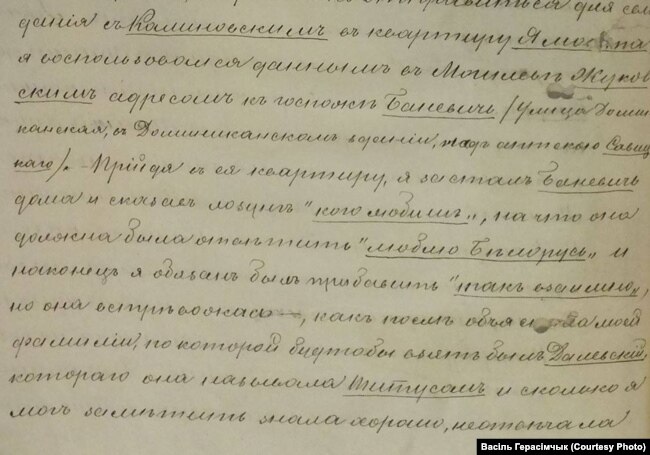 отправиться для сви
данія съ Калиновскимъ въ квартиру Ямонта
я воспользовался даннымъ въ Могилевѣ Жуков
скимъ адресомъ къ госпожѣ Баневичь /улица Домини
канская, въ Доминиканскомъ зданіи, надъ аптекою Савиц
каго/. Прійдя въ ея квартиру, я засталъ Баневичь
дома и сказавъ лозунгъ "кого любишь", на что она
должна была отвѣтить "люблю Бѣлорусь" и
наконецъ я обязанъ былъ прибавить "такъ взаимно",
но она встревожилась, какъ послѣ объяснила моей
фамиліи, по которой будтобы взятъ былъ Далевскій,
котораго она называла Титусомъ и сколько я
могъ замѣтить знала хорошо, неотвѣчала
Васіль Герасімчык (Courtesy Photo)